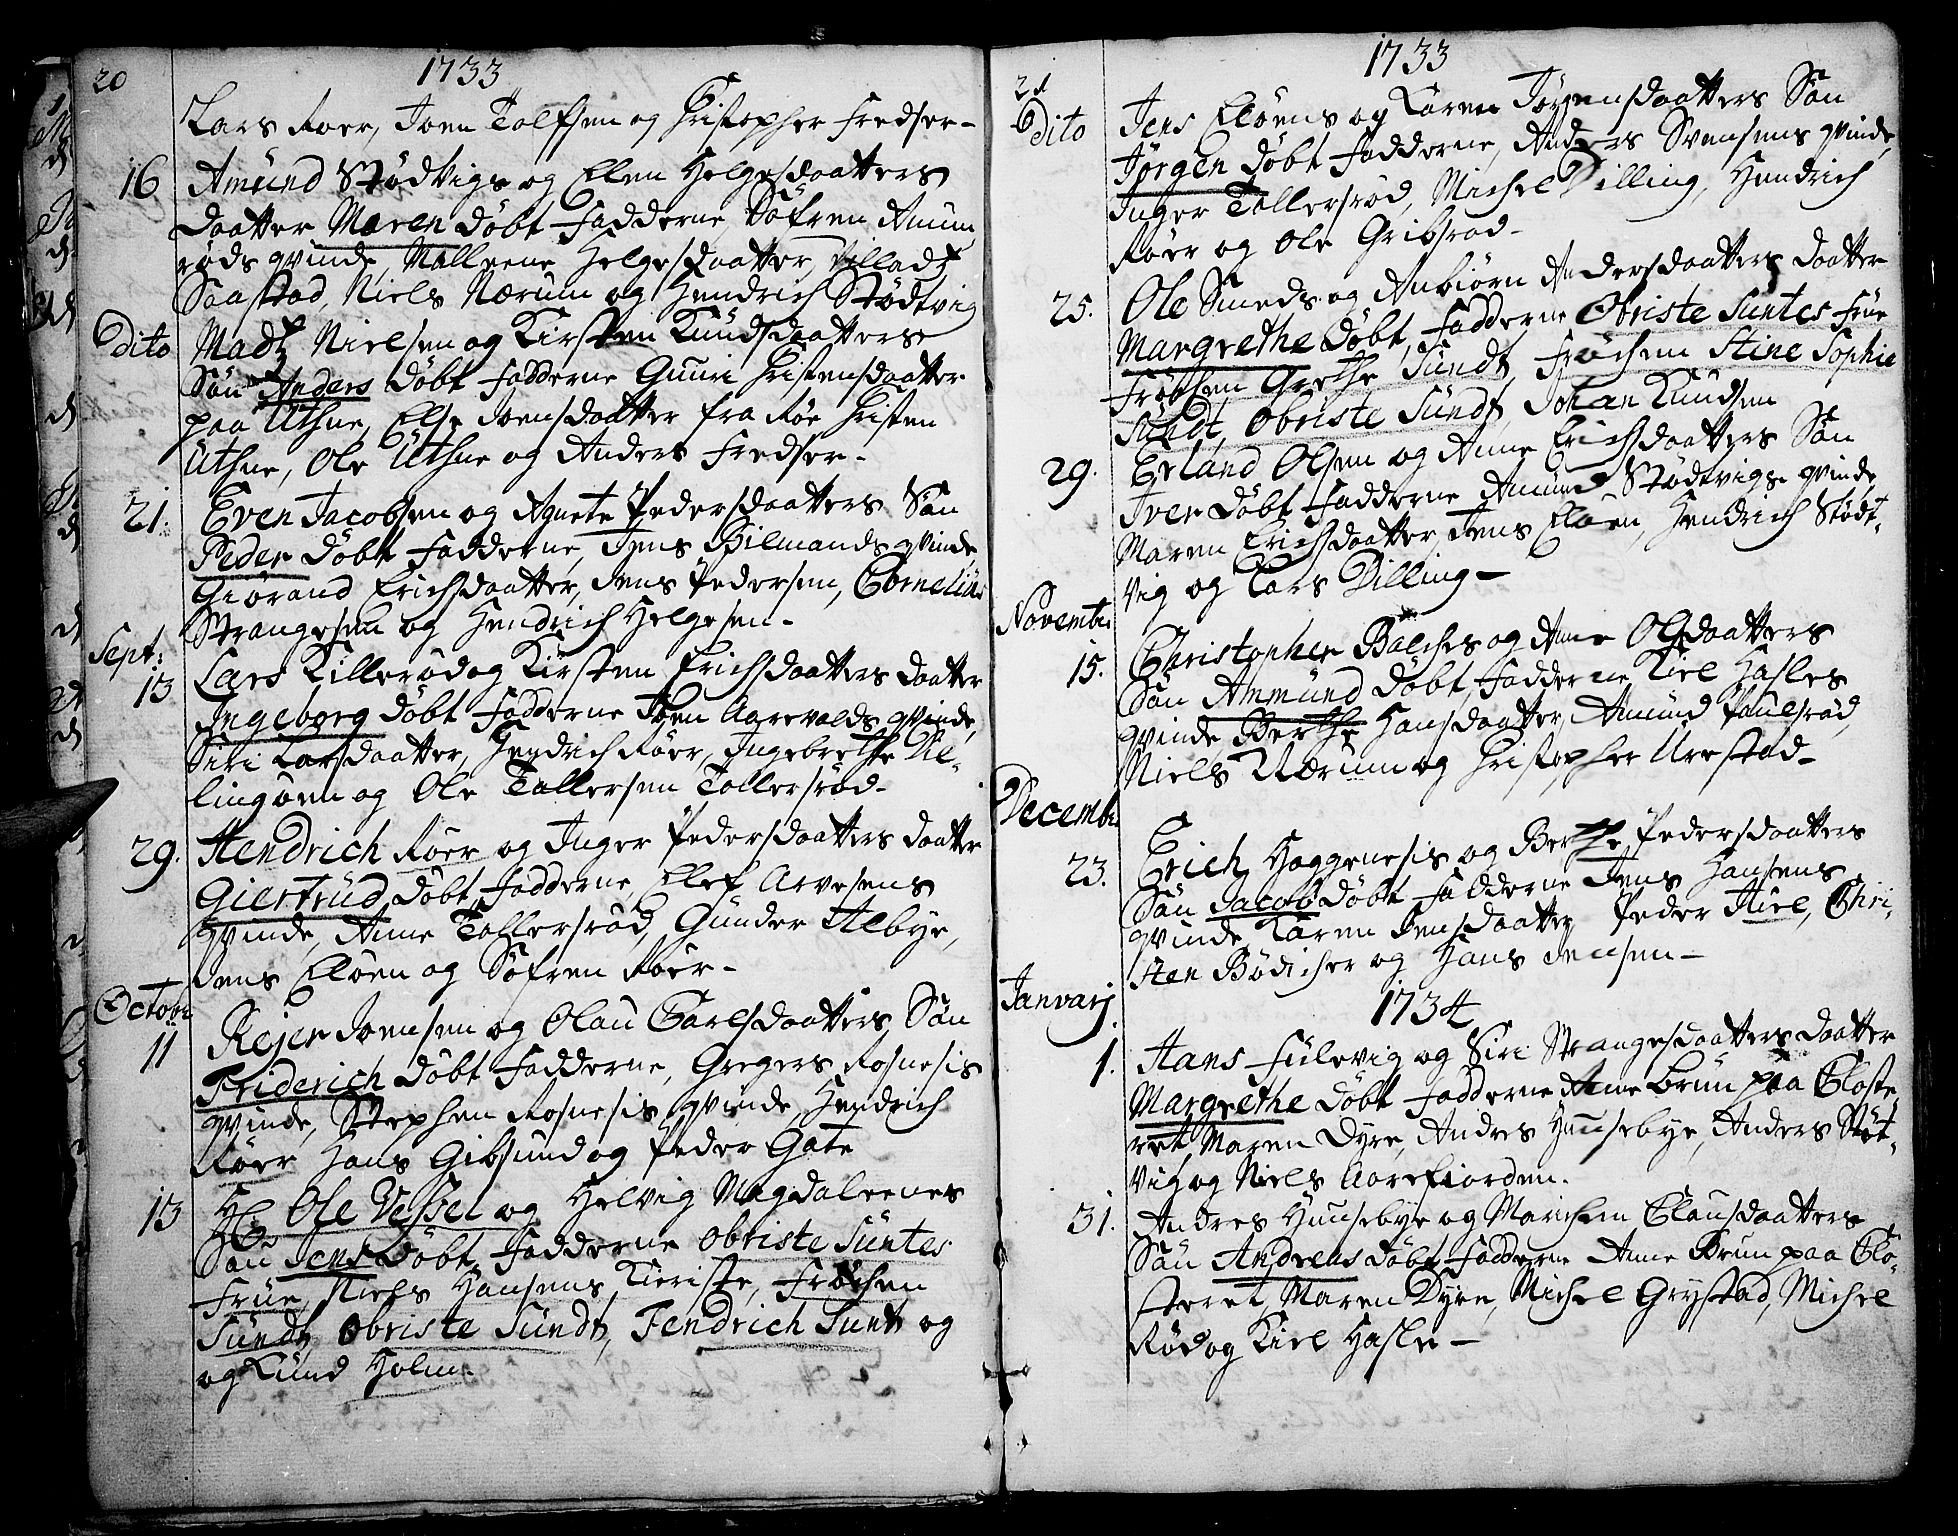 20
1733
Lars Roer, Joen Tolfsen og Christopher Fredser-
16 Amünd Stødvigs og Ellen Helgesdaatters
daatter Maren døbt Fadderne, Søfren Amun
røds qvinde, Mallene Helgesdaatter,
Saastad, Niels Nærum og Hendrich Stødtvig
Dito Madz Nielsen og Kirsten Knüdsdaatters
Søn Anders døbt Fadderne Guuri Christensdaatter
paa Uthne, Else Joensdaatter fra Røe Christen
Uthne, Ole Uthne og Anders Fredser-
21. Even Jacobsen og Agnete Pedersdaatters Søn
Peder døbt Fadderne, Jens Bilmands qvinde
Giørand Erichsdaatter, Jens Pedersen, Cornelius
Strangesen og Hendrich Helgesen-
Sept:
13 Lars Killerød og Kirsten Erichsdaatters daatter
Ingeborg døbt Fadderne Joen Aarevalds qvinde,
Siri Larsdaatter, Hendrich Røer, Ingebrethe Dil-
lingøen og Ole Tollersen Tollersrød-
29. Hendrich Røer og Inger Pedersdaatters daatter
Giertrüd døbt, Fadderne, Elef Arvesens
qvinde, Anne Tollersrød, Gunder Albye,
Jens Eløen og Søfren Røer-
Octobr
11 Rejer Joensen og Olau Carlsdaatters Søn
Friderich døbt Fadderne, Gregers Rosnesis
qvinde, Stephen Rosnesis qvinde, Hendrich
Røer Hans Gibsund og Peder Gate
13 Hr Ole Vessel og Helvig Magdaleenes
Søn Jens døbt, Fadderne Obriste Süntes
Früe, Niels Hansens Kieriste, Frøchen
Sündt, Obriste Sündt, Fendrich Sunt og
og Knüd Holm.
21
1733
Dito Jens Eløens og Karen Jørgensdaatters Søn
Jørgen døbt Fadderne, Anders Svensens qvinde,
Inger Tollersrød, Michel Dilling, Hendrich
Røer og Ole Gribsrød-
25. Ole Smeds og Anbiørn Andersdaatters daatter
Margrethe døbt, Fadderne Obriste Suntes Früe
Frøchen Grethe Sundt, Frøchen Stine Sophie
Sündt, Obriste Sündt, Johan Knudsen
29. Erland Olsen og Anne Erichsdaatters Søn
Iver døbt Fadderne Amund Stødtvigs qvinde,
Maren Erichsdaatter, Jens Eløen, Hendrich Stødt-
vig og Lars Dilling-
Novembr
15. Christopher Balches og Anne Olsdaatters
Søn Anmünd døbt, Fadderne Kiel Hasles
qvinde, Berthe Hansdaatter, Amünd Paulsrød,
Niels Nærum og Christopher Urestad-
Decembr
23. Erich Haggenesis og Berthe Pedersdaatters
Søn Jacob døbt Fadderne Jens Hansens
qvinde, Karen Jensdaatter, Peder Kiel, Chri-
sten Bødicher og Hans Jensen-
Janvarj
1734
1. Hans Fülevig og Siri Strangesdaatters daatter
Margrethe døbt Fadderne Anne Brun paa Closte
ret, Maren Dyre, Andres Huusebye, Anders Støt-
vig og Niels Aarefiorden.
31. Andres Huusebye og Marichen Clausdaatters
Søn Andreas døbt Fadderne Anne Brun paa Clo-
steret, Maren Dyre, Michel Grystad, Michel
Rød og Kiel Hasle-